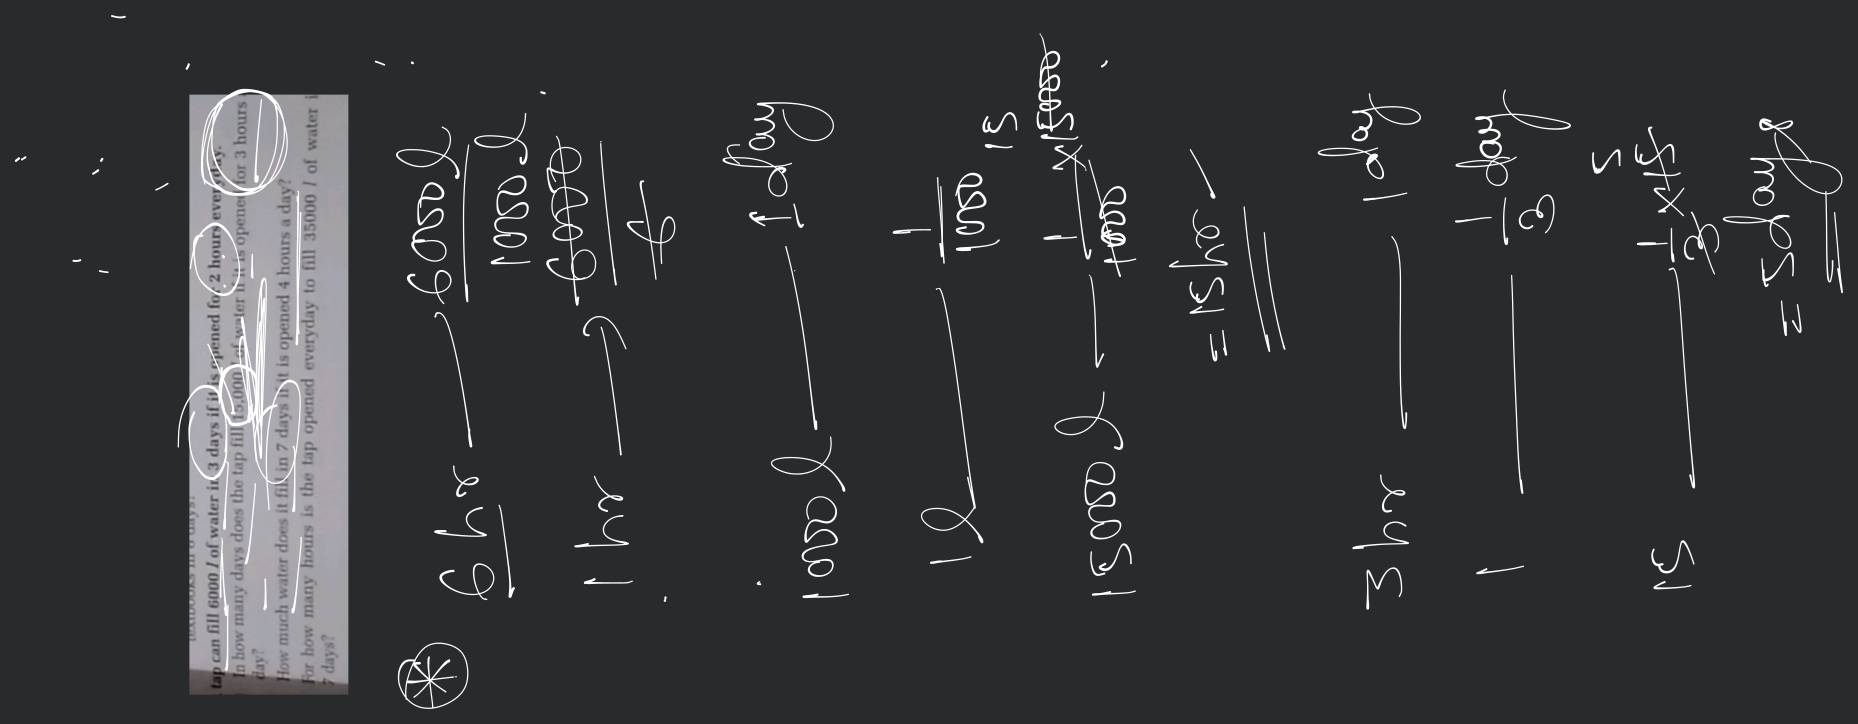 textbooks in 6 days?
tap can fill 6000 l of water in 3 days if it is opened for 2 hours everyday.
In how many days does the tap fill 15,000 l of water if it is opened for 3 hours
day?
How much water does it fill in 7 days if it is opened 4 hours a day?
For how many hours is the tap opened everyday to fill 35000 l of water i
7 days?
6 hr — 6000 l
1 hr — 6000
6
1000 l
1000 l — 1 day
1 l — 1
1000
15000 l — 1
1000 x 15000
15
= 15 hr
3 hr — 1 day
1 — 1
3 day
15 — 1
3 x 15
5
= 5 days